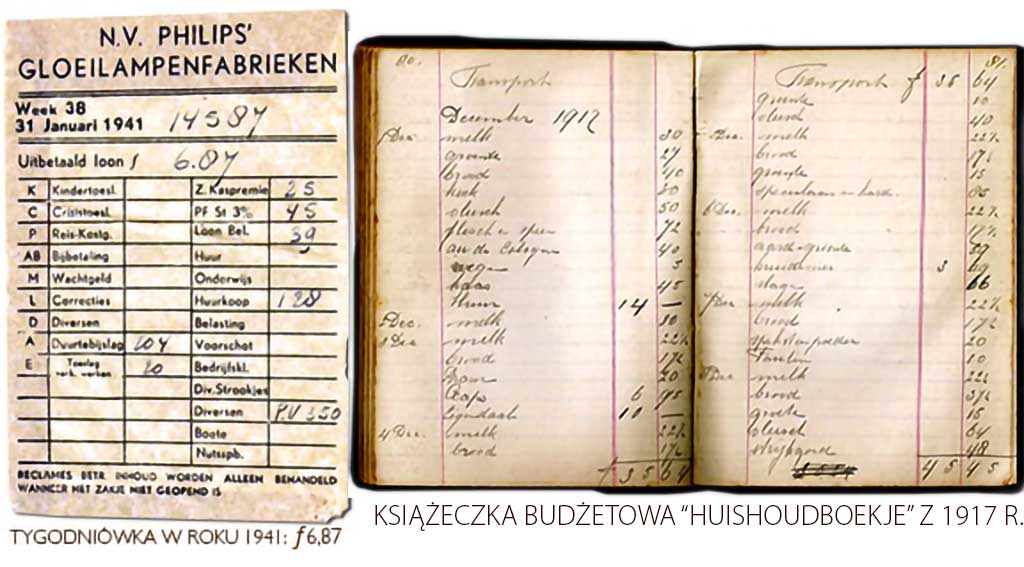 N.V. PHILIPS'
GLOEILAMPENFABRIEKEN
Week 38
31 Januari 1941 14587
Uitbetaald loon ƒ 6.87
K Kindertoesl. Z. Kaspremie 25
C Crisistoesl. PF St 3% 45
P Reis-Kostg. Loon Bel. 39
AB Bijbetaling Huur
M Wachtgeld Onderwijs
L Correcties Huurkoop 128
D Diversen Belasting
A Duurtebijslag 104 Voorschot
E Toeslag verk. werken 20 Bedrijfskl.
Div. Strookjes
Diversen P.V 350
Boete
Nutsspb.
RECLAMES BETR. INHOUD WORDEN ALLEEN BEHANDELD
WANNEER HET ZAKJE NIET GEOPEND IS
TYGODNIÓWKA W ROKU 1941: ƒ6,87
80.
Transport
December 1917
1 Dec. melk 30
groente 27
brood 40
50
72
au de Cologne 40
5
45
Huur 14 —
2 Dec. melk 30
3 Dec. melk 22½
brood 17½
20
6 95
10 —
4 Dec. melk 22½
brood 17½
ƒ 35 64
81.
Transport ƒ 35 64
groente 10
40
Dec. melk 22½
brood 17½
groente 15
85
6 Dec. melk 22½
brood 17½
aard-groente 59
3 69
66
7 Dec melk 22½
brood 17½
20
10
8 Dec melk 22½
brood 37½
15
64
48
45 45
KSIĄŻECZKA BUDŻETOWA “HUISHOUDBOEKJE” Z 1917 R.